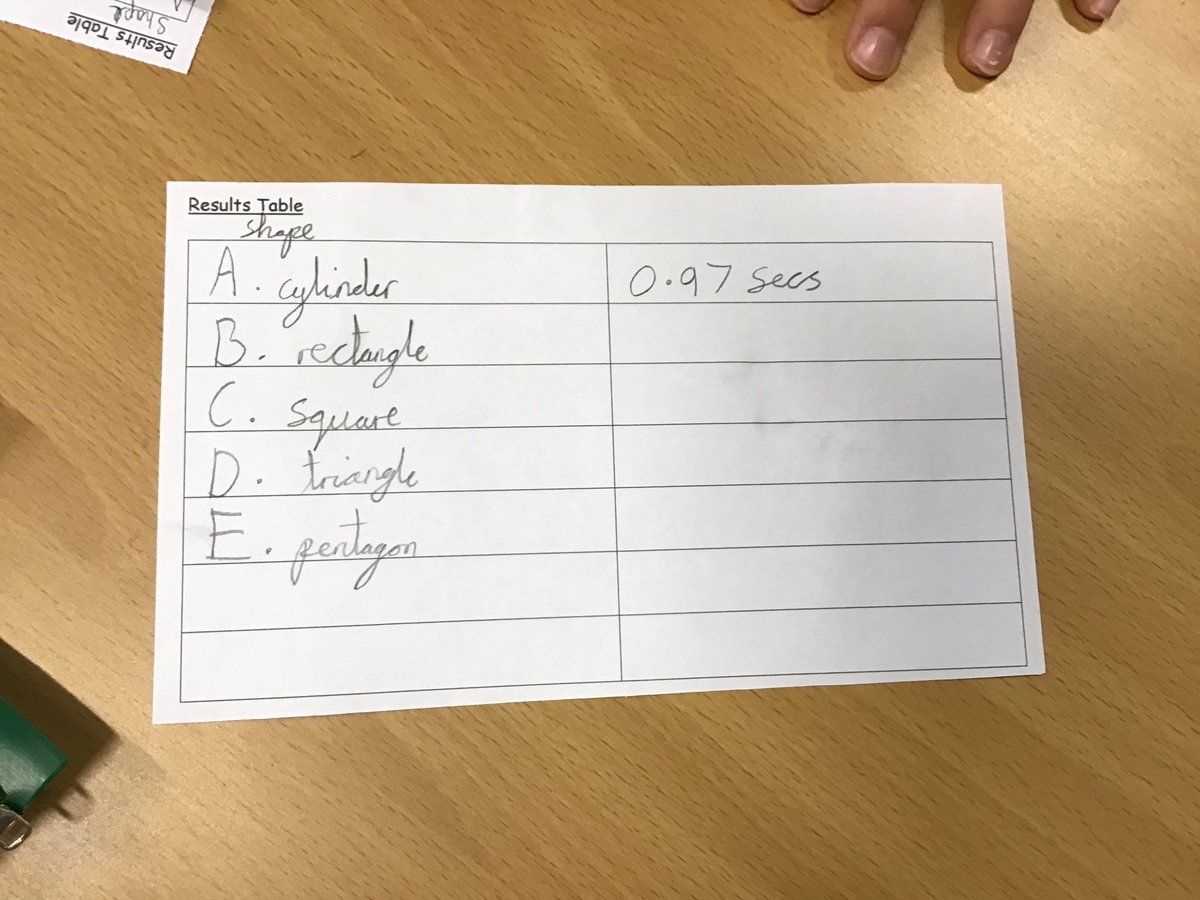 Results Table
Shape
Results Table
Shape
A. cylinder 0.97 secs
B. rectangle
C. square
D. triangle
E. pentagon